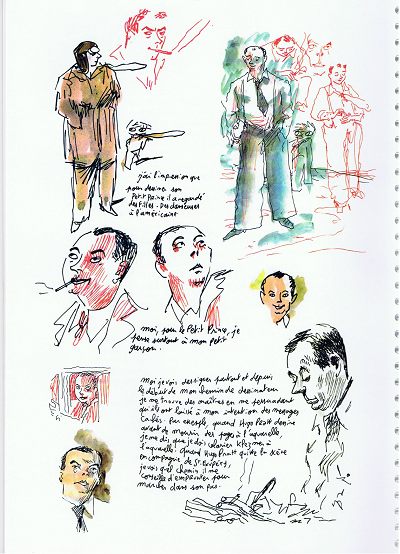 j'ai l'impression que
pour dessiner son
Petit Prince il a regardé
des filles. Des danseuses
à l'américaine
moi, pour le Petit Prince, je
pense surtout à mon petit
garçon.
moi je vois des signes partout et depuis
le début de mon chemin de dessinateur
je me trouve des maîtres en me persuadant
qu'ils ont laissé à mon intention des messages
cachés. Par exemple, quand Hugo Pratt dessine
avant de mourir des pages à l'aquarelle
je me dis que je dois colorier Klezmer à
l'aquarelle. Quand Hugo Pratt quitte la scène
en compagnie de St. Exupéry,
je vois quel chemin il me
conseille d'emprunter pour
marcher dans son pas.